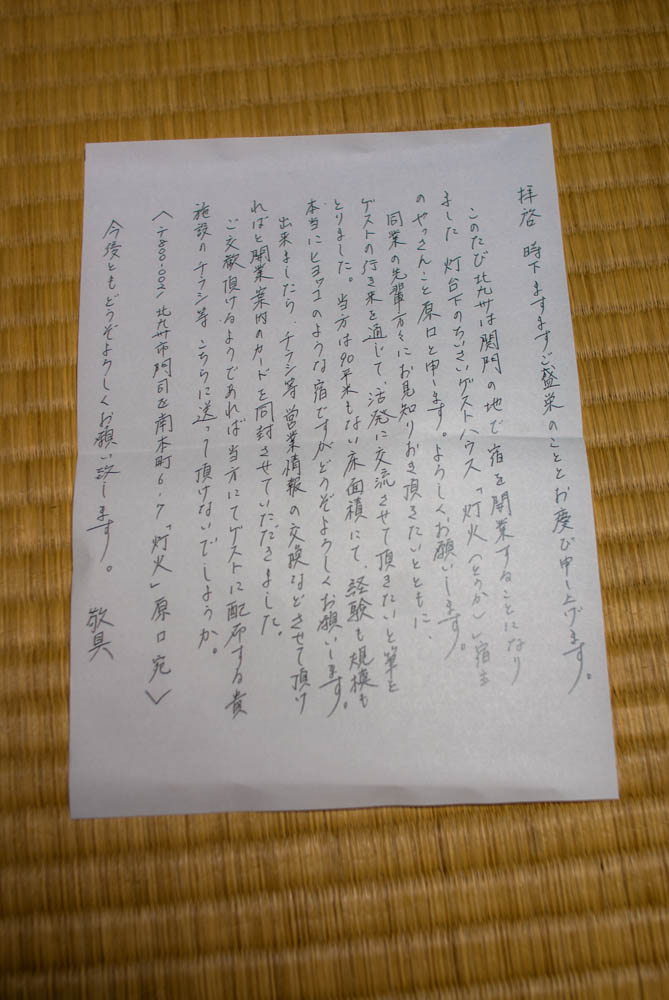 拝啓 時下ますますご盛栄のこととお慶び申し上げます。
このたび北九州は関門の地で宿を開業することになり
ました 灯台下のちいさいゲストハウス「灯火(とうか)」宿主
のやっさんこと原口と申します。よろしくお願いします。
同業の先輩方々にお見知りおき頂きたいとともに、
ゲストの行き来を通じて、活発に交流させて頂きたいと筆と
とりました。当方は90平米もない床面積にて、経験も規模も
本当にヒヨッコのような宿ですがどうぞよろしくお願いします。
出来ましたら、チラシ等営業情報の交換などさせて頂け
ればと開業案内のカードを同封させていただきました。
ご交歓頂けるようであれば当方にてゲストに配布する貴
施設のチラシ等こちらに送って頂けないでしょうか。
〈〒800-0021 北九州市門司区南本町6-7「灯火」原口 宛〉
今後ともどうぞよろしくお願い致します。
敬具